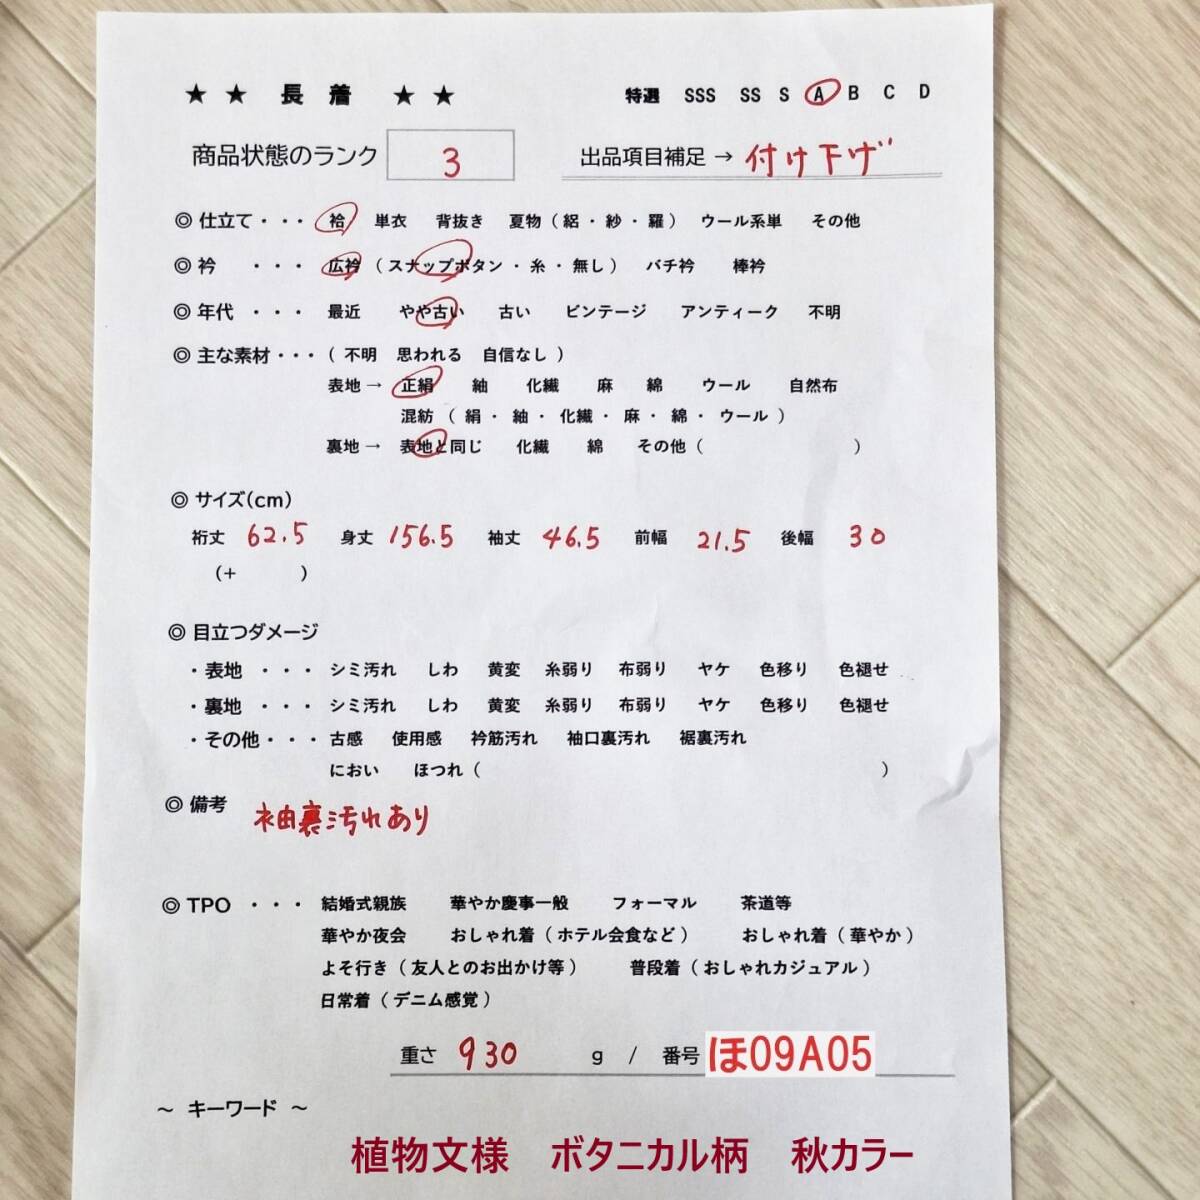 ★ ★ 長 着 ★ ★ 特選 SSS SS S A B C D
商品状態のランク 3 出品項目補足 → 付け下げ
◎ 仕立て・・・ 袷 単衣 背抜き 夏物（ 絽 ・ 紗 ・ 羅 ） ウール系単 その他
◎ 衿 ・・・ 広衿 （ スナップボタン ・ 糸 ・ 無し ） バチ衿 棒衿
◎ 年代 ・・・ 最近 やや古い 古い ビンテージ アンティーク 不明
◎ 主な素材・・・（ 不明 思われる 自信なし ）
表地 → 正絹 紬 化繊 麻 綿 ウール 自然布
混紡 （ 絹 ・ 紬 ・ 化繊 ・ 麻 ・ 綿 ・ ウール ）
裏地 → 表地と同じ 化繊 綿 その他（ ）
◎ サイズ(cm)
裄丈 62.5 身丈 156.5 袖丈 46.5 前幅 21.5 後幅 30
（+ ）
◎ 目立つダメージ
・表地 ・・・ シミ汚れ しわ 黄変 糸弱り 布弱り ヤケ 色移り 色褪せ
・裏地 ・・・ シミ汚れ しわ 黄変 糸弱り 布弱り ヤケ 色移り 色褪せ
・その他・・・ 古感 使用感 衿筋汚れ 袖口裏汚れ 裾裏汚れ
におい ほつれ（ ）
◎ 備考 袖裏汚れあり
◎ TPO ・・・ 結婚式親族 華やか慶事一般 フォーマル 茶道等
華やか夜会 おしゃれ着（ ホテル会食など ） おしゃれ着（ 華やか ）
よそ行き（ 友人とのお出かけ等 ） 普段着（ おしゃれカジュアル ）
日常着（ デニム感覚 ）
重さ 930 g / 番号 ほ09A05
～ キーワード ～
植物文様 ボタニカル柄 秋カラー